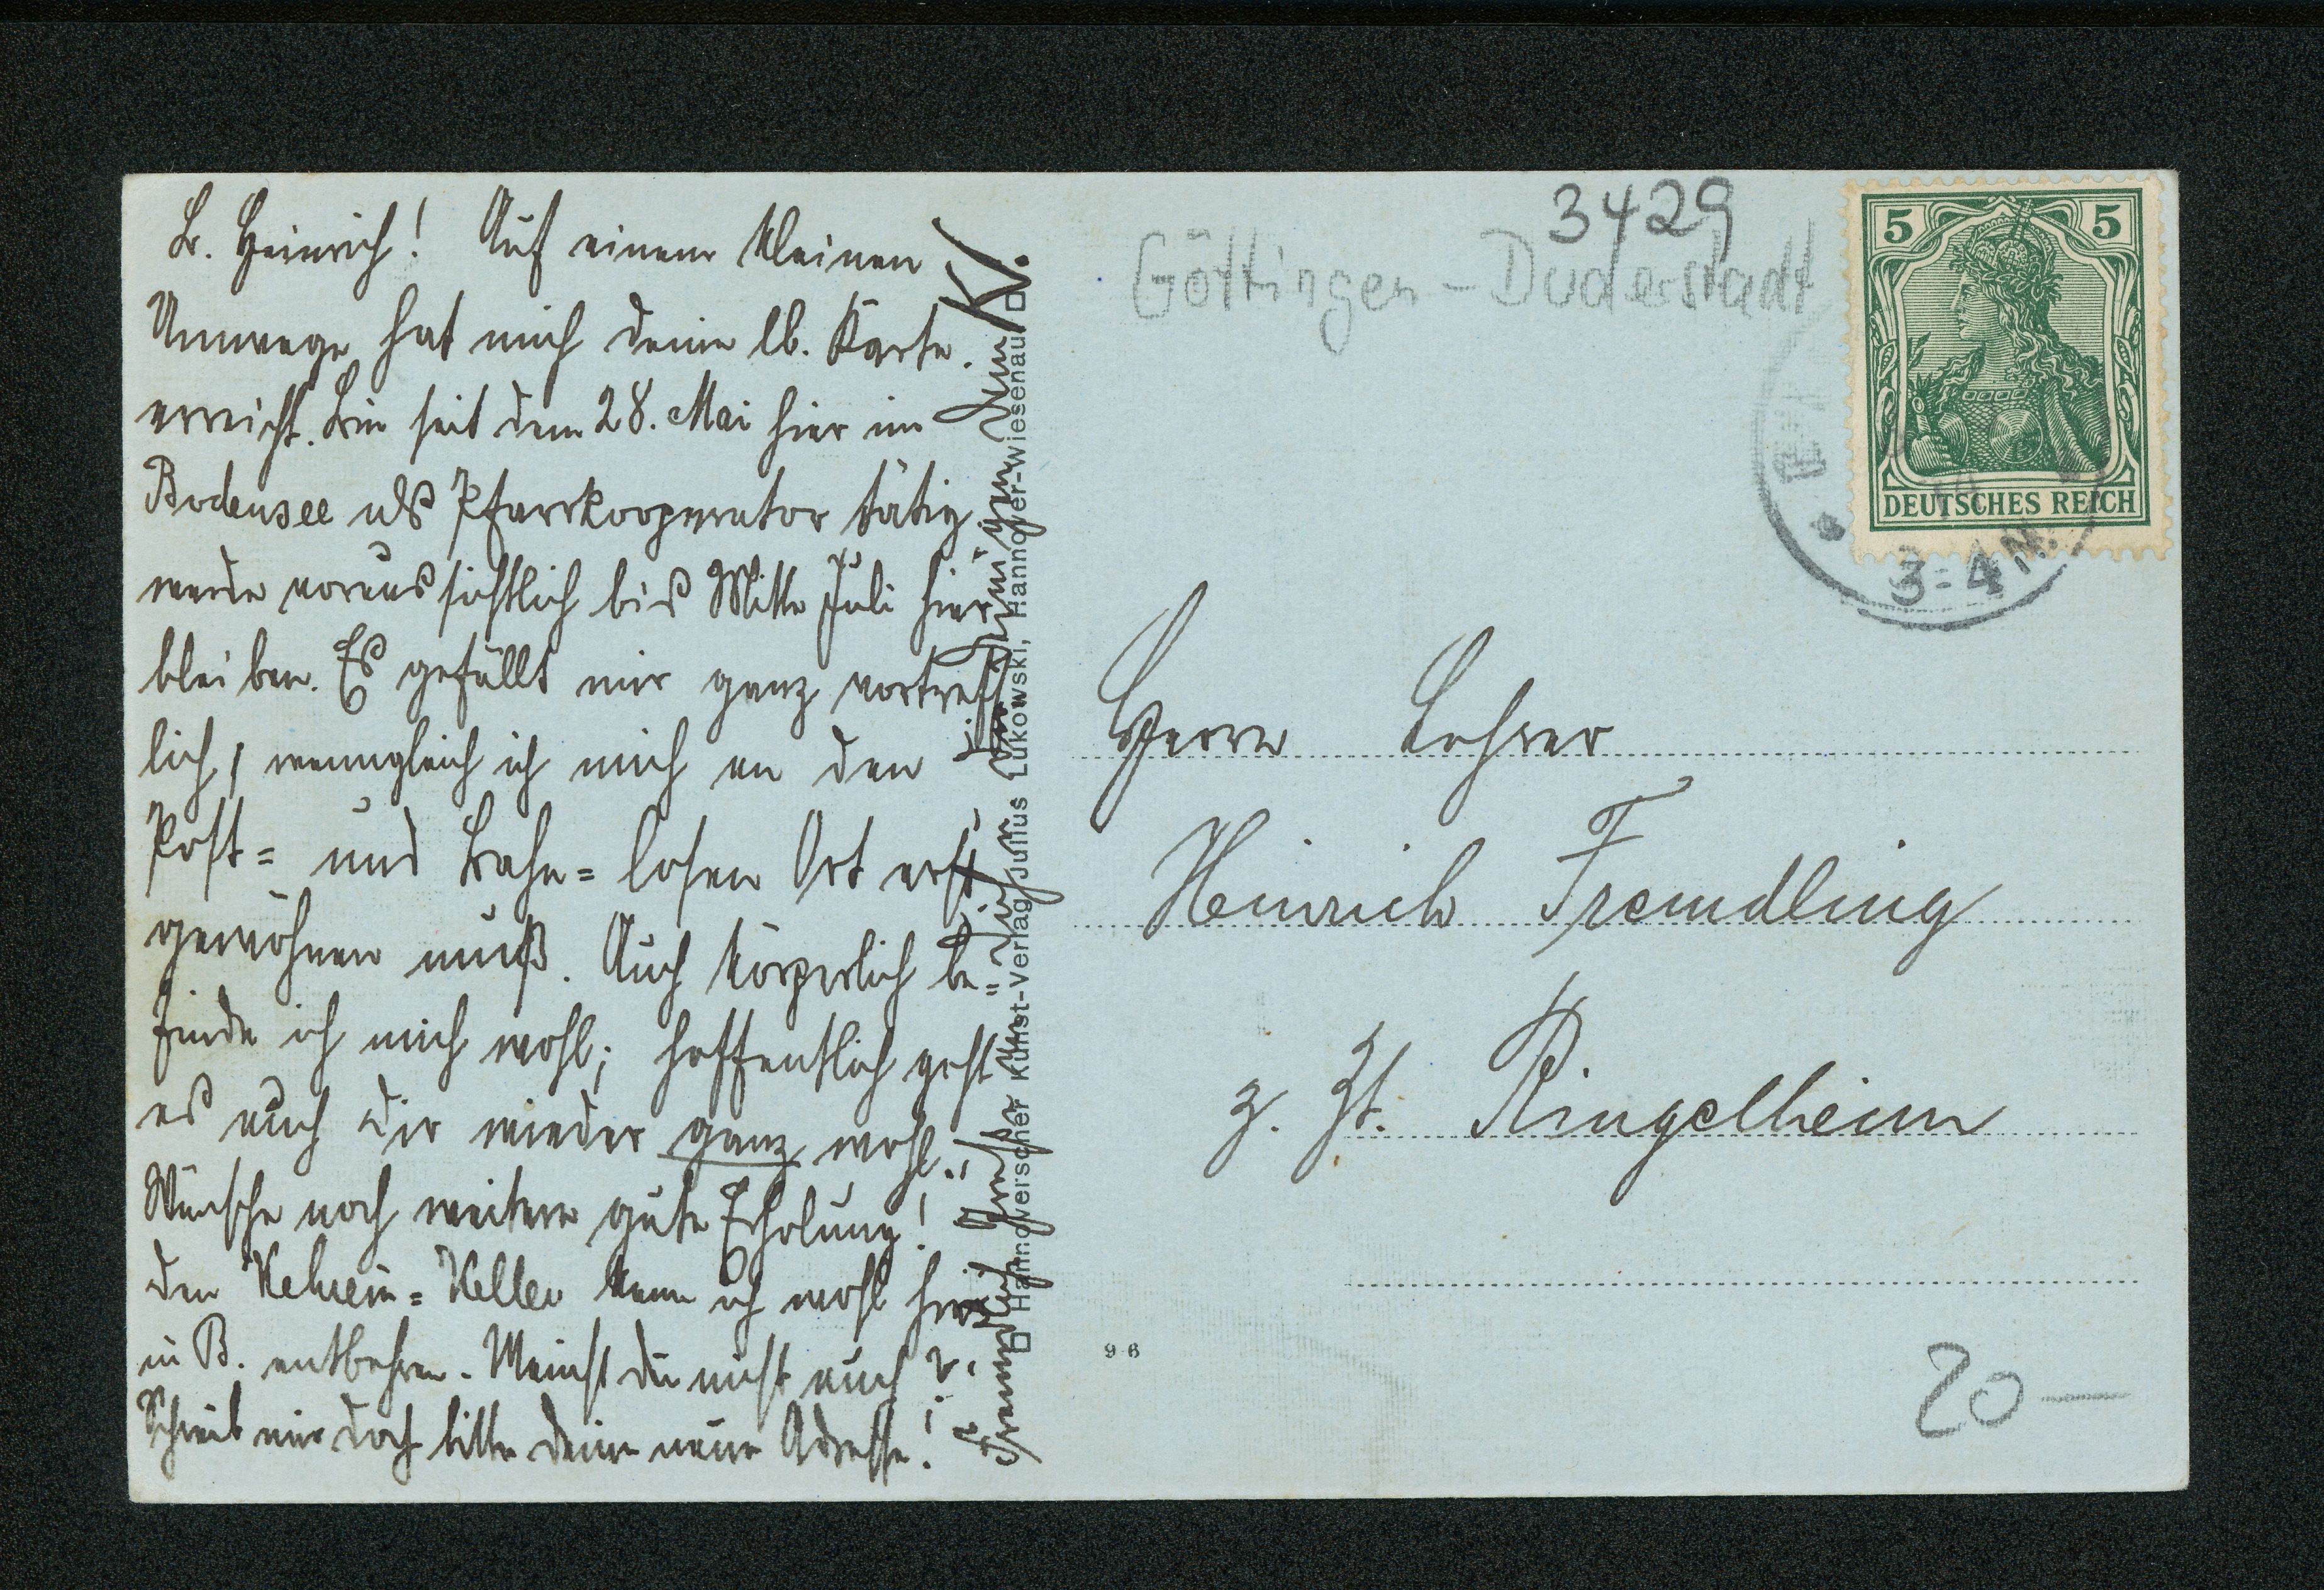 L. Heinrich! Auf einem kleinen
Umwege hat mich deine lb. Karte
erreicht. Bin seit dem 28. Mai hier in
Bodensee als Pfarrkooperator tätig
werde voraussichtlich bis Mitte Juli hier
bleiben. Es gefällt mir ganz vortreff
lich, wenngleich ich mich an den
Post= und Bahn=losen Ort erst
gewöhnen muß. Auch körperlich be=
finde ich mich wohl; hoffentlich geht
es auch dir wieder ganz wohl.
Wünsche noch weitere gute Erholung!
Den Kehrein=Keller kann ich wohl hier
in B. entbehren. Meinst du nicht auch?
Schreib mir doch bitte deine neue Adresse!
Freundlich grüßt
dein K.
Hannoverscher Kunst-Verlag Julius Lukowski, Hannover-Wiesenau
3429
Göttingen - Duderstadt
5 5
DEUTSCHES REICH
3-4 N.
Herrn Lehrer
Heinrich Fremdling
z. Zt. Ringelheim
96
20—